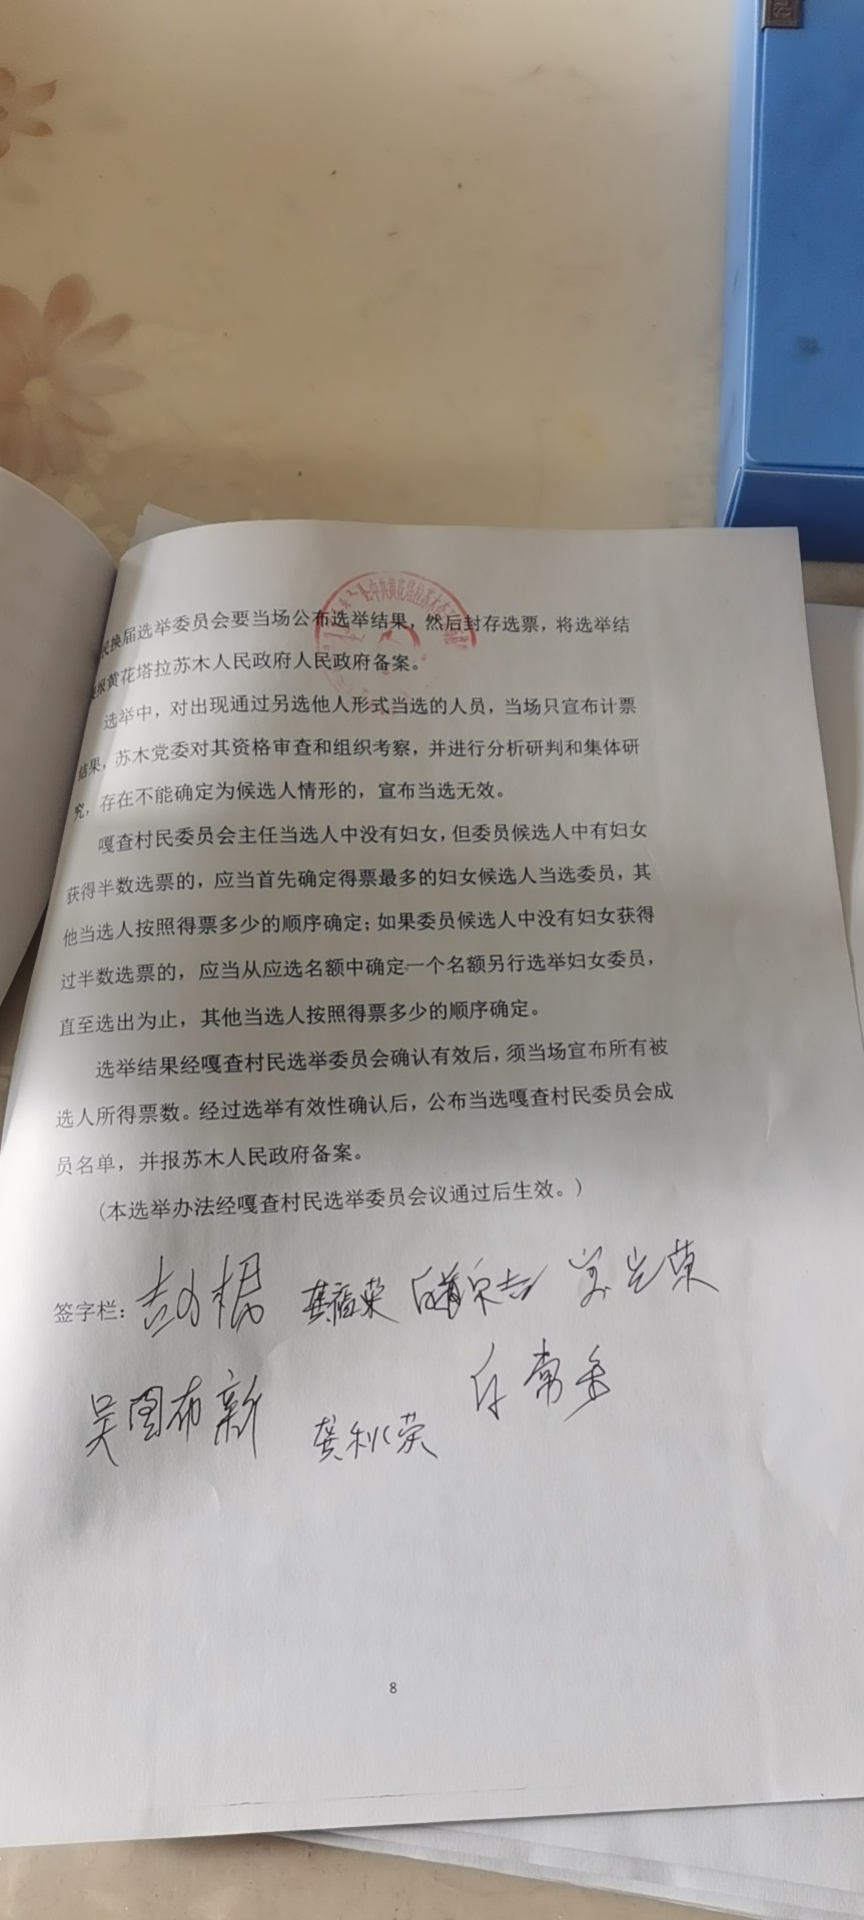 中共黄花塔拉苏木
民换届选举委员会要当场公布选举结果，然后封存选票，将选举结
报黄花塔拉苏木人民政府人民政府备案。
选举中，对出现通过另选他人形式当选的人员，当场只宣布计票
结果，苏木党委对其资格审查和组织考察，并进行分析研判和集体研
究，存在不能确定为候选人情形的，宣布当选无效。
嘎查村民委员会主任当选人中没有妇女，但委员候选人中有妇女
获得半数选票的，应当首先确定得票最多的妇女候选人当选委员，其
他当选人按照得票多少的顺序确定；如果委员候选人中没有妇女获得
过半数选票的，应当从应选名额中确定一个名额另行选举妇女委员，
直至选出为止，其他当选人按照得票多少的顺序确定。
选举结果经嘎查村民选举委员会确认有效后，须当场宣布所有被
选人所得票数。经过选举有效性确认后，公布当选嘎查村民委员会成
员名单，并报苏木人民政府备案。
（本选举办法经嘎查村民选举委员会议通过后生效。）
签字栏：
吴图布新 龚利荣
8